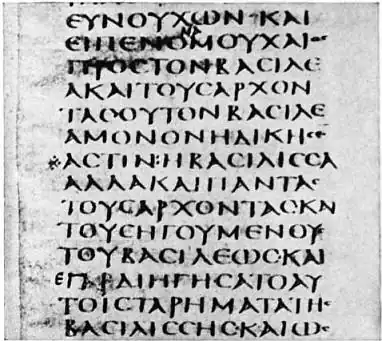 ΕΥΝΟΥΧΩΝ·ΚΑΙ
ΕΙΠΕΝΟΜΟΥΧΑΙΟC
ΠΡΟCΤΟΝΒΑCΙΛΕ
ΑΚΑΙΤΟΥCΑΡΧΟΝ
ΤΑCΟΥΤΟΝΒΑCΙΛΕ
ΑΜΟΝΟΝΗΔΙΚΗCΕ
ΑCΤΙΝ:ΗΒΑCΙΛΙCCΑ
ΑΛΛΑΚΑΙΠΑΝΤΑC
ΤΟΥCΑΡΧΟΝΤΑCΚΑΙ
ΤΟΥCΗΓΟΥΜΕΝΟΥC
ΤΟΥΒΑCΙΛΕΩCΚΑΙ
ΓΑΡΔΙΗΓΗCΑΤΟΑΥ
ΤΟΙCΤΑΡΗΜΑΤΑΤΗC
ΒΑCΙΛΙCCΗCΚΑΙΩC